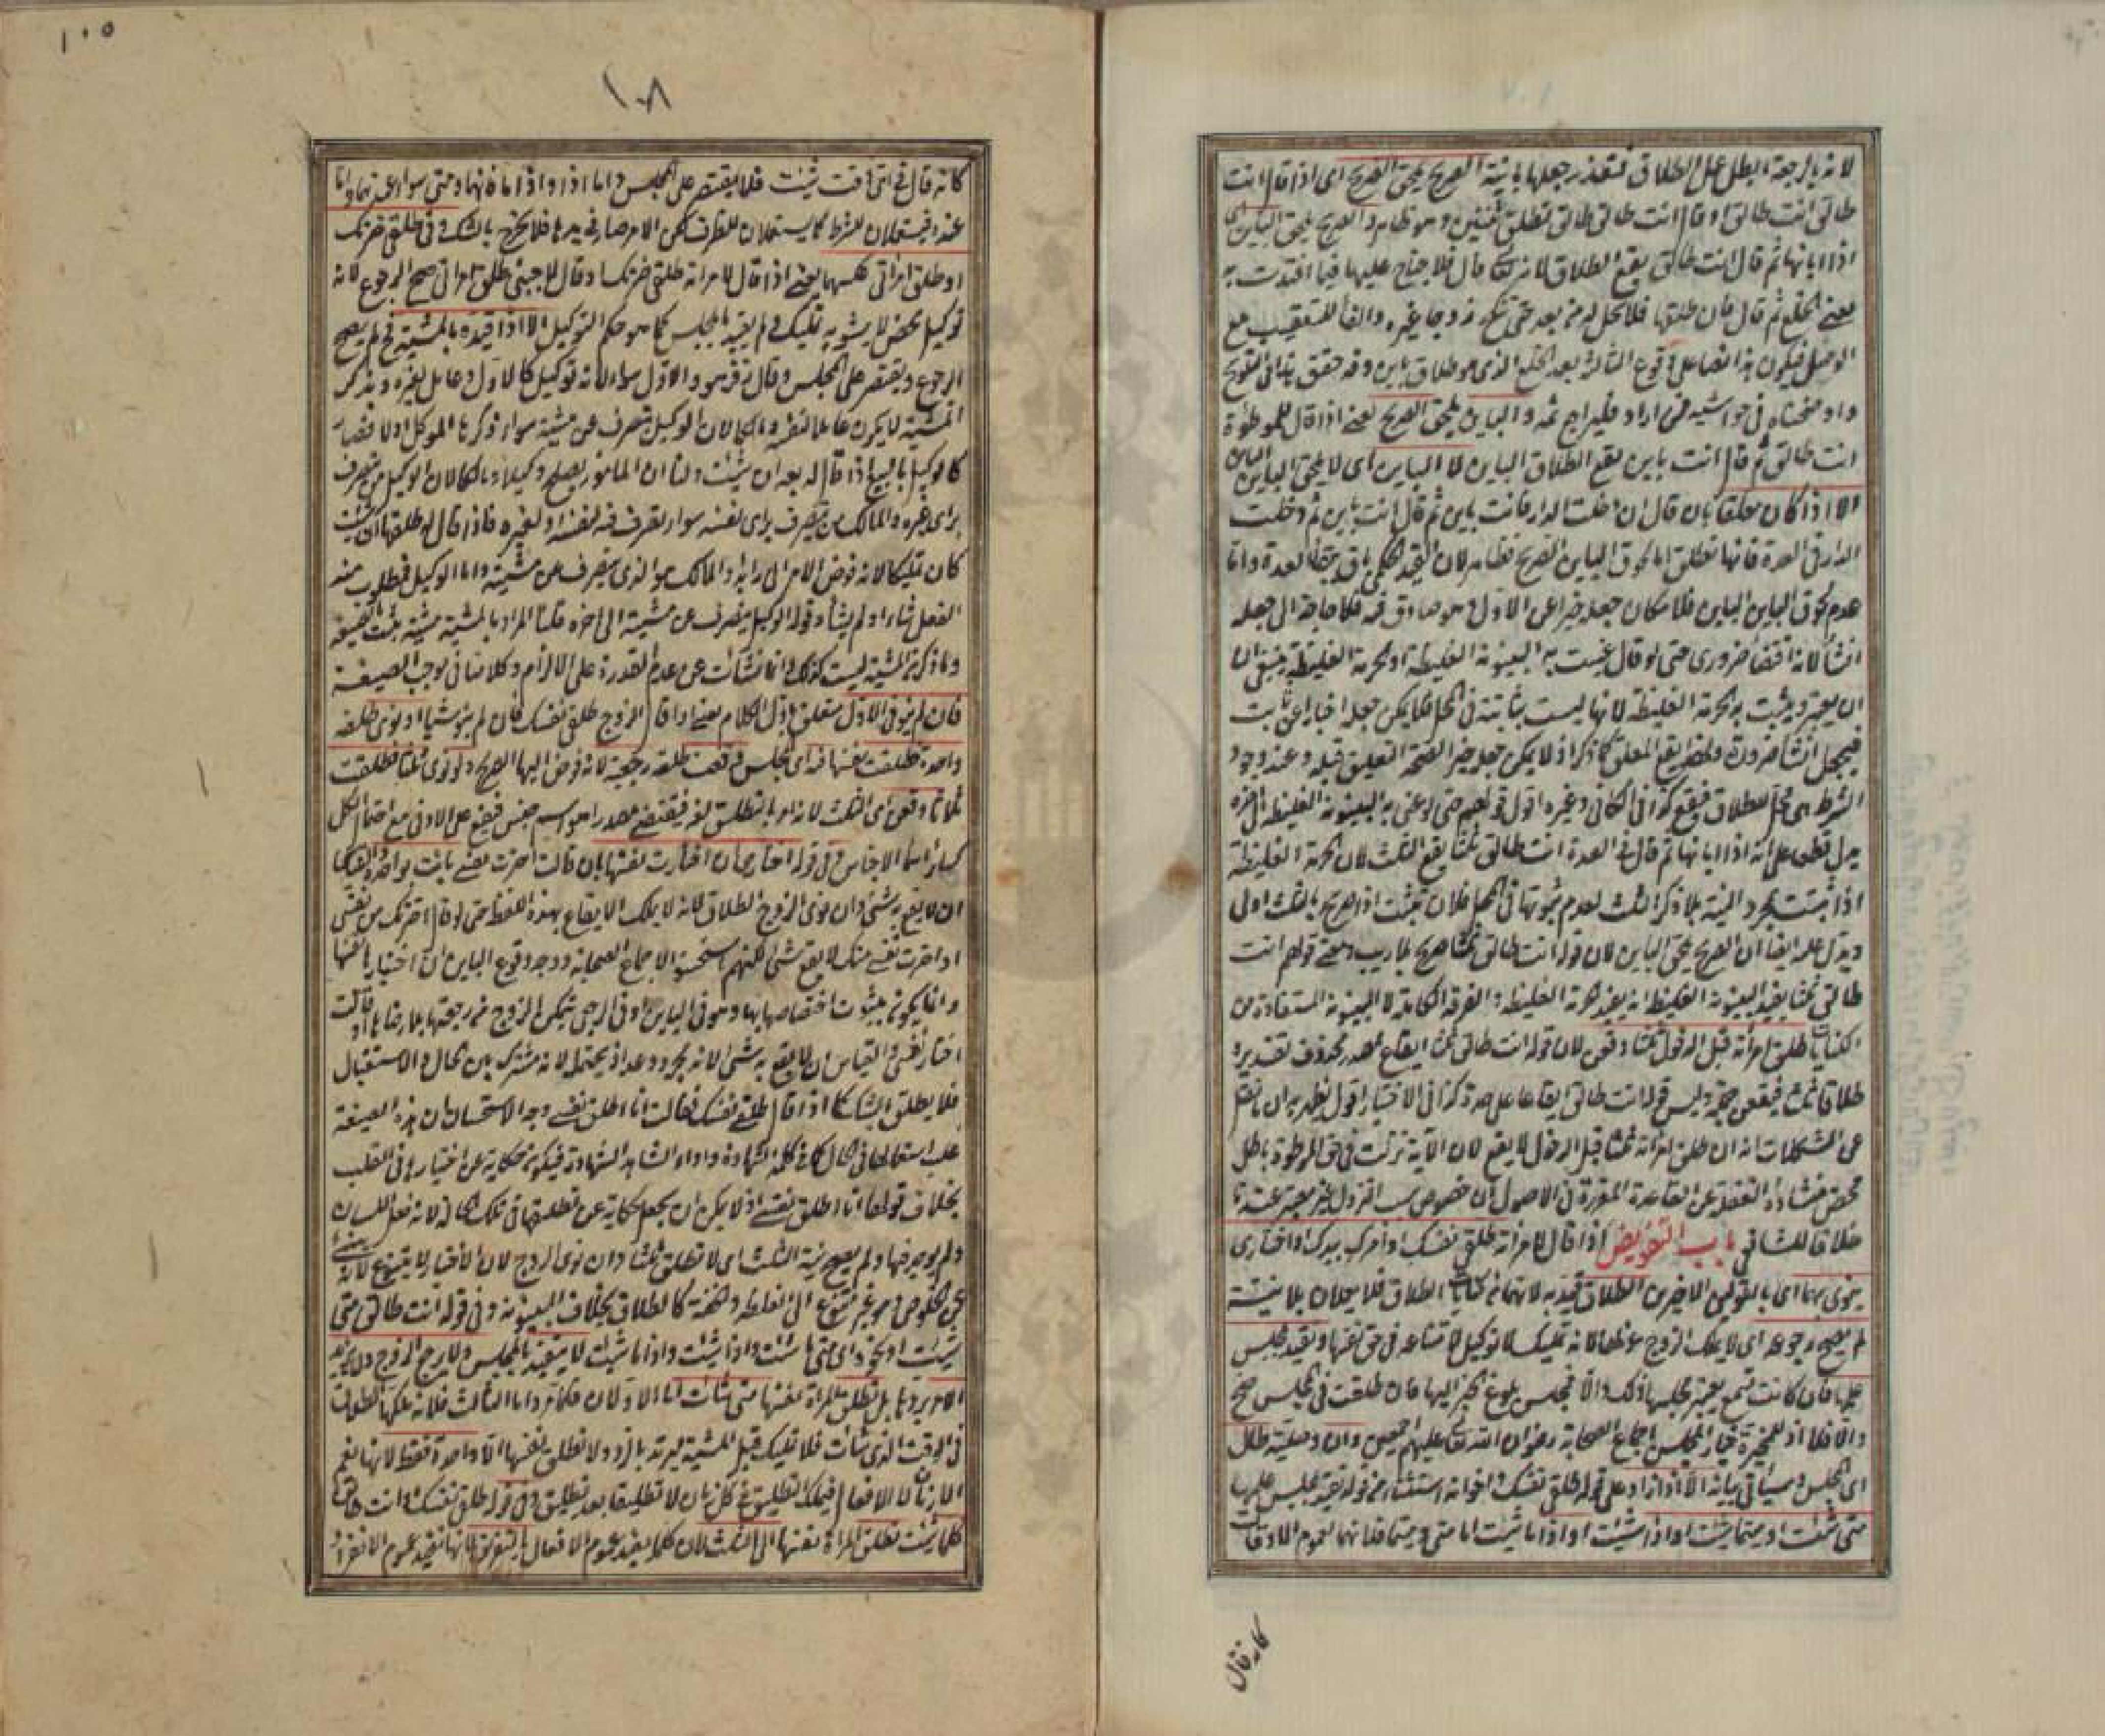 لانه بالرجعة ابطل عمل الطلاق فتعذر جعلها باينة الصريح يلحق الصريح اى اذا قال انت
طالق انت طالق او قال انت طالق طالق تطلق ثنتين وهو ظاهر والصريح يلحق الباين اى
اذا ابانها ثم قال انت طالق يقع الطلاق لانه تعالى قال فلا جناح عليهما فيما افتدت به
يعنى الخلع ثم قال فان طلقها فلا تحل له من بعد حتى تنكح زوجا غيره والفاء للتعقيب مع
الوصل فيكون هذا نصا على وقوع الثالث بعد الخلع الذى هو طلاق باين وقد حقق هذا فى التلويح
واوضحناه فى حواشيه فمن اراد فليراجع ثمه والباين يلحق الصريح يعنى اذا قال للموطوءة
انت طالق ثم قال انت باين يقع الطلاق الباين لا الباين اى لا يلحق الباين الباين
الا اذا كان معلقا بان قال ان دخلت الدار فانت باين ثم قال انت باين ثم دخلت
الدار فى العدة فانها تطلق اما لحوق الباين الصريح فظاهر لان القيد الحكمى باق ببقاء العدة واما
عدم لحوق الباين الباين فلامكان جعله خبرا عن الاول وهو صادق فيه فلا حاجة الى جعله
انشاء لانه اقتضاء ضرورى حتى لو قال عنيت به البينونة الغليظة او الحرمة الغليظة ينبغى ان
ان يعتبر ويثبت به الحرمة الغليظة لانها ليست بثابتة فى المحل فلا يمكن جعله اخبارا عن ثابت
فيجعل انشاء ضرورة ولهذا يقع المعلق كما ذكر اذ لا يمكن جعله خبرا لصحة التعليق قبله وعند وجود
الشرط هى محل للطلاق فيقع كذا فى الكافى وغيره اقول قولهم حتى لو عنى به البينونة الغليظة الى اخره
يدل قطعا على انه اذا ابانها ثم قال فى العدة انت طالق ثلثا يقع الثلث لان الحرمة الغليظة
اذا ثبتت بمجرد النية بلا ذكر الثلث لعدم ثبوتها فى المحل فلان تثبت اذا صرح بالثلث اولى
ويدل عليه ايضا ان الصريح يلحق الباين لان قوله انت طالق ثلثا صريح بلا ريب ومعنى قولهم انت
طالق ثلثا يفيد البينونة الغليظة انه يفيد الحرمة الغليظة والفرقة الكاملة لا البينونة المستفادة من
الكنايات طلق امرأته قبل الدخول ثلثا وقعن لان قوله انت طالق ثلثا ايقاع لمصدر محذوف تقديره
طلاقا ثلثا فيقعن جملة وليس قوله انت طالق ايقاعا على حدة كذا فى الاختيار اقول يظهر به ان ما نقل
عن المشكلات انه ان طلق امرأته ثلثا قبل الدخول لا يقع لان الآية نزلت فى حق الموطوءة باطل
محض منشاؤه الغفلة عن القاعدة المقررة فى الاصول ان خصوص سبب النزول غير معتبر عندنا
خلافا للشافعى باب التفويض اذا قال لامرأته طلقى نفسك او امرك بيدك او اختارى
ينوى بهما اى بالقولين الاخيرين الطلاق قيد به لانهما من كنايات الطلاق فلا يعملان بلا نية
لم يصح رجوعه اى لا يملك الزوج عزلها لانه تمليك لا توكيل لامتناعه فى حق نفسها ويقيد بمجلس
علمها فان كانت تسمع يعتبر مجلسها ذلك والا فمجلس بلوغ الخبر اليها فان طلقت فى المجلس صح
والا فلا اذ للمخيرة خيار المجلس باجماع الصحابة رضوان الله تعالى عليهم اجمعين وان وصلية طال
اى المجلس وسياتى بيانه الا اذا زاد على قوله طلقى نفسك واخواته استثناء من قوله تقيد بمجلس علمها
متى شئت او متى ما شئت او اذا شئت او اذا ما شئت اما متى ومتى ما فلانهما لعموم الاوقات
كانه قال
١٠٥
١٠٨
كانه قال فى اى وقت شئت فلا يقتصر على المجلس واما اذا واذا ما فانهما ومتى سواء عندهما واما
عنده فيستعملان للشرط كما يستعملان للظرف لكن الامر صار فى يدها فلا يخرج بالشك وفى طلقى ضرتك
او طلق امرأتى عكسهما يعنى اذا قال لامرأته طلقى ضرتك او قال لاجنبى طلق امرأتى صح الرجوع لانه
توكيل محض لا يشوبه تمليك ولم يقيد بالمجلس كما هو حكم التوكيل الا اذا قيده بالمشية فح لم يصح
الرجوع ويقتصر على المجلس وقال زفر هو والاول سواء لانه توكيل كالاول وعامل لغيره وبذكر
المشية لا يكون عاملا لنفسه ومالكا لان الوكيل يتصرف عن مشيته سواء ذكرها الموكل او لا فصار
كالوكيل بالبيع اذا قال له بعه ان شئت ولنا ان المأمور يصلح وكيلا ومالكا لان الوكيل من يتصرف
براى غيره والمالك من يتصرف براى نفسه سواء تصرف فيه لنفسه او لغيره فاذا قال له طلقها ان شئت
كان تمليكا لانه فوض الامر الى رايه والمالك هو الذى يتصرف عن مشيته واما الوكيل فمطلوب منه
الفعل شاء او لم يشأ وقوله الوكيل يتصرف عن مشيته الى اخره قلنا المراد بالمشية مشية يثبت بالصيغة
وما ذكره من المشية ليست كذلك وانما نشأت عن عدم القدرة على الالزام وكلامنا فى موجب الصيغة
فان لم ينو فى الاول متعلق باول الكلام يعنى اذا قال الزوج طلقى نفسك فان لم ينو شيئا او نوى طلقة
واحدة فطلقت نفسها فى اى مجلس وقعت طلقة رجعية لانه فوض اليها الصريح ولو نوى ثلثا فطلقت
ثلاثا وقعن اى الثلث لانه امر بالتطليق لغة فيقتضى مصدرا هو اسم جنس فيقع على الادنى مع احتمال الكل
كسائر اسماء الاجناس وفى قوله اختارى ان اختارت نفسها بان قالت اخترت نفسى بانت بواحدة والقياس
ان لا يقع به شئ وان نوى الزوج الطلاق لانه لا يملك الايقاع بهذا اللفظ حتى لو قال اخترتك من نفسى
او اخترت نفسى منك لا يقع شئ لكنهم استحسنوا لاجماع الصحابة ووجه وقوع الباين ان اختيارها نفسها
وانما يكون بثبوت اختصاصها بها وهو فى الباين اذ فى الرجعى يتمكن الزوج من رجعتها بلا رضاها او قالت
اختار نفسى والقياس ان لا يقع به شئ لانه مجرد وعد او يحتمله لانه مشترك بين الحال والاستقبال
فلا يطلق بالشك كما اذا قال طلقى نفسك فقالت انا اطلق نفسى وجه الاستحسان ان هذه الصيغة
غلب استعمالها فى الحال كما فى كلمة الشهادة واداء الشاهد الشهادة فيكون حكاية عن اختيارها فى القلب
بخلاف قولها انا اطلق نفسى اذ لا يمكن ان يجعل حكاية عن تطليقها فى تلك الحالة لانه فعل اللسان
ولم يوجد فيها ولم يصح نية الثلث اى لا تطلق ثلثا وان نوى الزوج لان الاختيار لا يتنوع لانه ينبئ
عن الخلوص وهو غير متنوع الى الغلظة والخفة كالطلاق بخلاف البينونة وفى قوله انت طالق متى
شئت او نحوه اى متى ما شئت واذا شئت واذا ما شئت لا يتقيد بالمجلس ولا يرجع الزوج ولا يرتد
الامر بردها بل تطلق المرأة نفسها متى شاءت اما الاولان فلما مر واما الثالث فلانه ملكها الطلاق
فى الوقت الذى شاءت فلا تمليك قبل المشية ليرتد بالرد ولا تطلق نفسها الا واحدة فقط لانها تعم
الازمان لا الافعال فيملك التطليق فى كل زمان لا تطليقا بعد تطليق وفى قوله طلقى نفسك وانت طالق
كلما شئت تطلق المرأة نفسها الى الثلث لان كلما يفيد عموم الافعال بالتفريق لانها تفيد عموم الانفراد